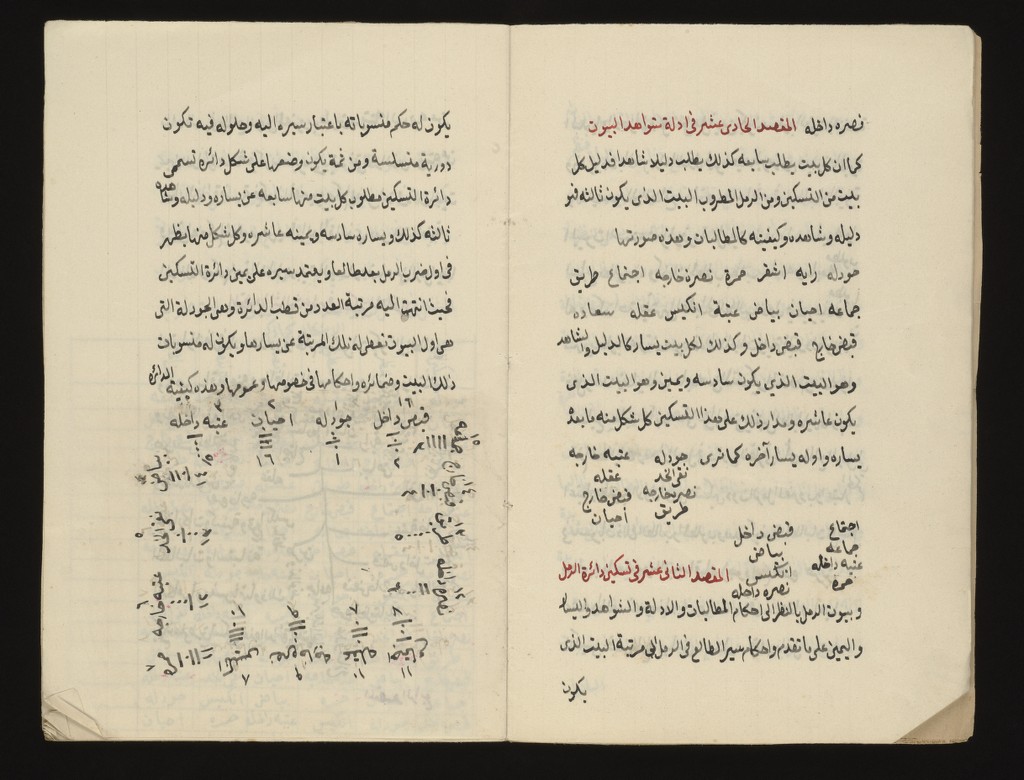 نصره داخله المقصد الحادى عشر فى ادلة شواهد البيوت
كما ان كل بيت يطلب سابعه كذلك يطلب دليلا شاهدا فدليل كل
بيت من التسكين ومن الرمل المطروب البيت الذى يكون ثالثه فهو
دليله وشاهده وكيفيته كالمطالبات وهذه صورتها
جودله رايه اشقر حمرة نصرة خارجه اجتماع طريق
جماعه احيان بياض عتبة انكيس عقله سعاده
قبض خارج قبض داخل وكذلك لكل بيت يسار كالدليل والشاهد
وهو البيت الذي يكون سادسه ويمين وهو البيت الذى
يكون عاشره ومدار ذلك على هذا التسكين كل شكل منه ما بعده
يساره واوله يسار آخره كما ترى جودله عتبه خارجه
نقى الخد عقله
نصره خارجه قبض خارج
طريق احيان
اجتماع قبض داخل
جماعه بياض
عتبه داخله انكيس
حمره نصره داخله
المقصد الثانى عشر فى تسكين دائرة الرمل
وبيوت الرمل بالنظر الى احكام المطالبات والادلة والشواهد واليسار
واليمين على ما تقدم واحكام سير الطالع فى الرمل الى مرتبة البيت الذى
يكون
يكون له حكم منسوباته باعتبار سيره اليه وحلوله فيه تكون
دورية متسلسة ومن ثمة يكون وضعها على شكل دائرة تسمى
دائرة التسكين مطلوب كل بيت منها سابعه عن يساره ودليله وشاهده
ثالثه كذلك ويساره سادسه ويمينه عاشره وكل شكل منها يظهر
فى اول ضرب الرمل يعد طالعا ويعتمد سيره على يمين دائرة التسكين
فحيث انتهت اليه مرتبة العدد من قطب الدائرة وهى الجودلة التى
هى اول البيوت تعطى له تلك المرتبة عن يسارها ويكون له منسوبات
ذلك البيت وضمائره واحكامها فى خصومها وعمومها وهذه كيفية الدائره
قبض داخل جودله احيان عتبه داخله
بياض
نقى الخد
عتبه خارجه
حمره
جماعه
قبض خارج
طريق
نصره داخله